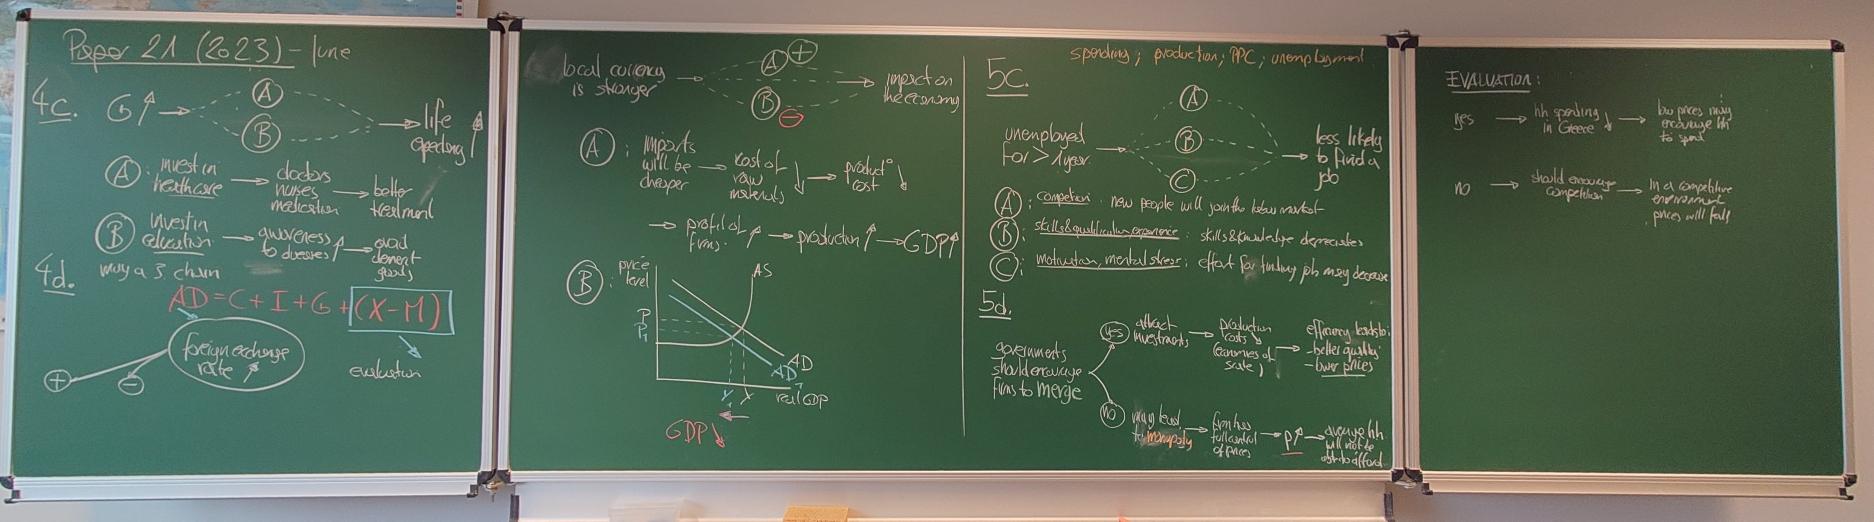 Paper 21 (2023) - June
4c.
G↑ →
A
B
→ life
speeding ↑
A : invest in
healthcare → doctors
nurses
medication → better
treatment
B invest in
education → awareness ↑
to diseases → avoid
demerit
goods
4d. may a 3. chain
AD = C + I + G + (X - M)
foreign exchange
rate ↑
+ -
evaluation
local currency
is stronger →
A +
B -
→ impact on
the economy
A : imports
will be
cheaper → cost of
raw
materials ↓ → product°
cost ↓
→ profit of
firms ↑ → production ↑ → GDP↑
B : price
level
AS
P
P₁
AD
AD₁
Y₁ Y real GDP
GDP↓
spending; production; PPC; unemployment
5c.
unemployed
for > 1 year →
A
B
C
→ less likely
to find a
job
A : competition : new people will join the labour market
B : skills & qualification, experience : skills & knowledge depreciates
C : motivation, mental stress ; effort for finding job may decrease
5d.
governments
should encourage
firms to merge
yes attract
investments → production
costs ↓
(economies of
scale) → efficiency leads to:
- better quality
- lower prices
no may lead
to monopoly → firm has
full control
of prices → P↑ → average hh
will not be
able to afford
EVALUATION:
yes → hh spending
in Greece ↓ → low prices may
encourage hh
to spend
no → should encourage
competition → in a competitive
environment
prices will fall